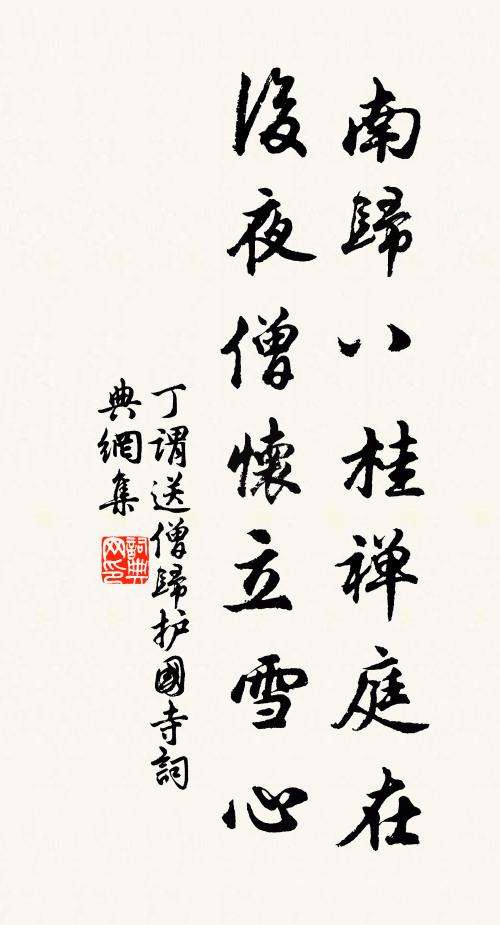 南歸八桂禅庭在
後夜僧懷立雪心
丁謂送僧歸护國寺詞
典網集
詞典
网印